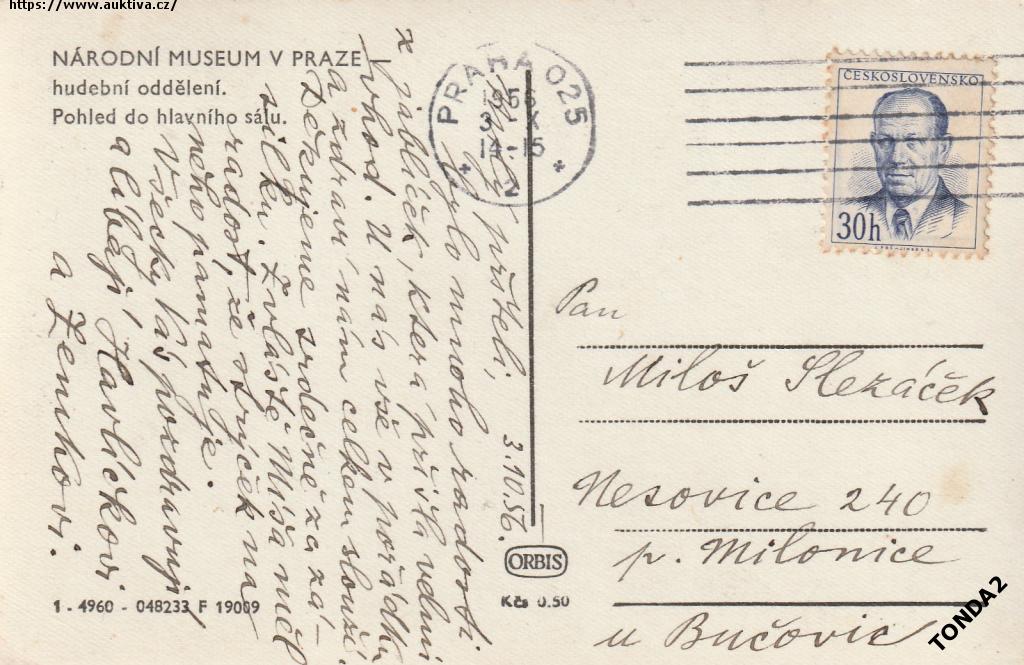 https://www.auktiva.cz/
NÁRODNÍ MUSEUM V PRAZE
hudební oddělení.
Pohled do hlavního sálu.
PRAHA 025
1956
3. X
14-15
2
ČESKOSLOVENSKO
30h
přátelé,
3.10.56.
bylo mnoho radosti
z jablíček, která přišla velmi
vhod. U nás vše v pořádku
a zdraví nám celkem slouží.
Děkujeme srdečně za zá-
silku. Zvláště Míša měl
radost, že strýček na
něho pamatuje.
Všecky Vás pozdravují
a líbají Havlíčkovi
a Zemkovi.
Pan
Miloš Slezáček
Nesovice 240
p. Milonice
u Bučovic
ORBIS
Kčs 0.50
1 - 4960 - 048233 F 19009
TONDA2